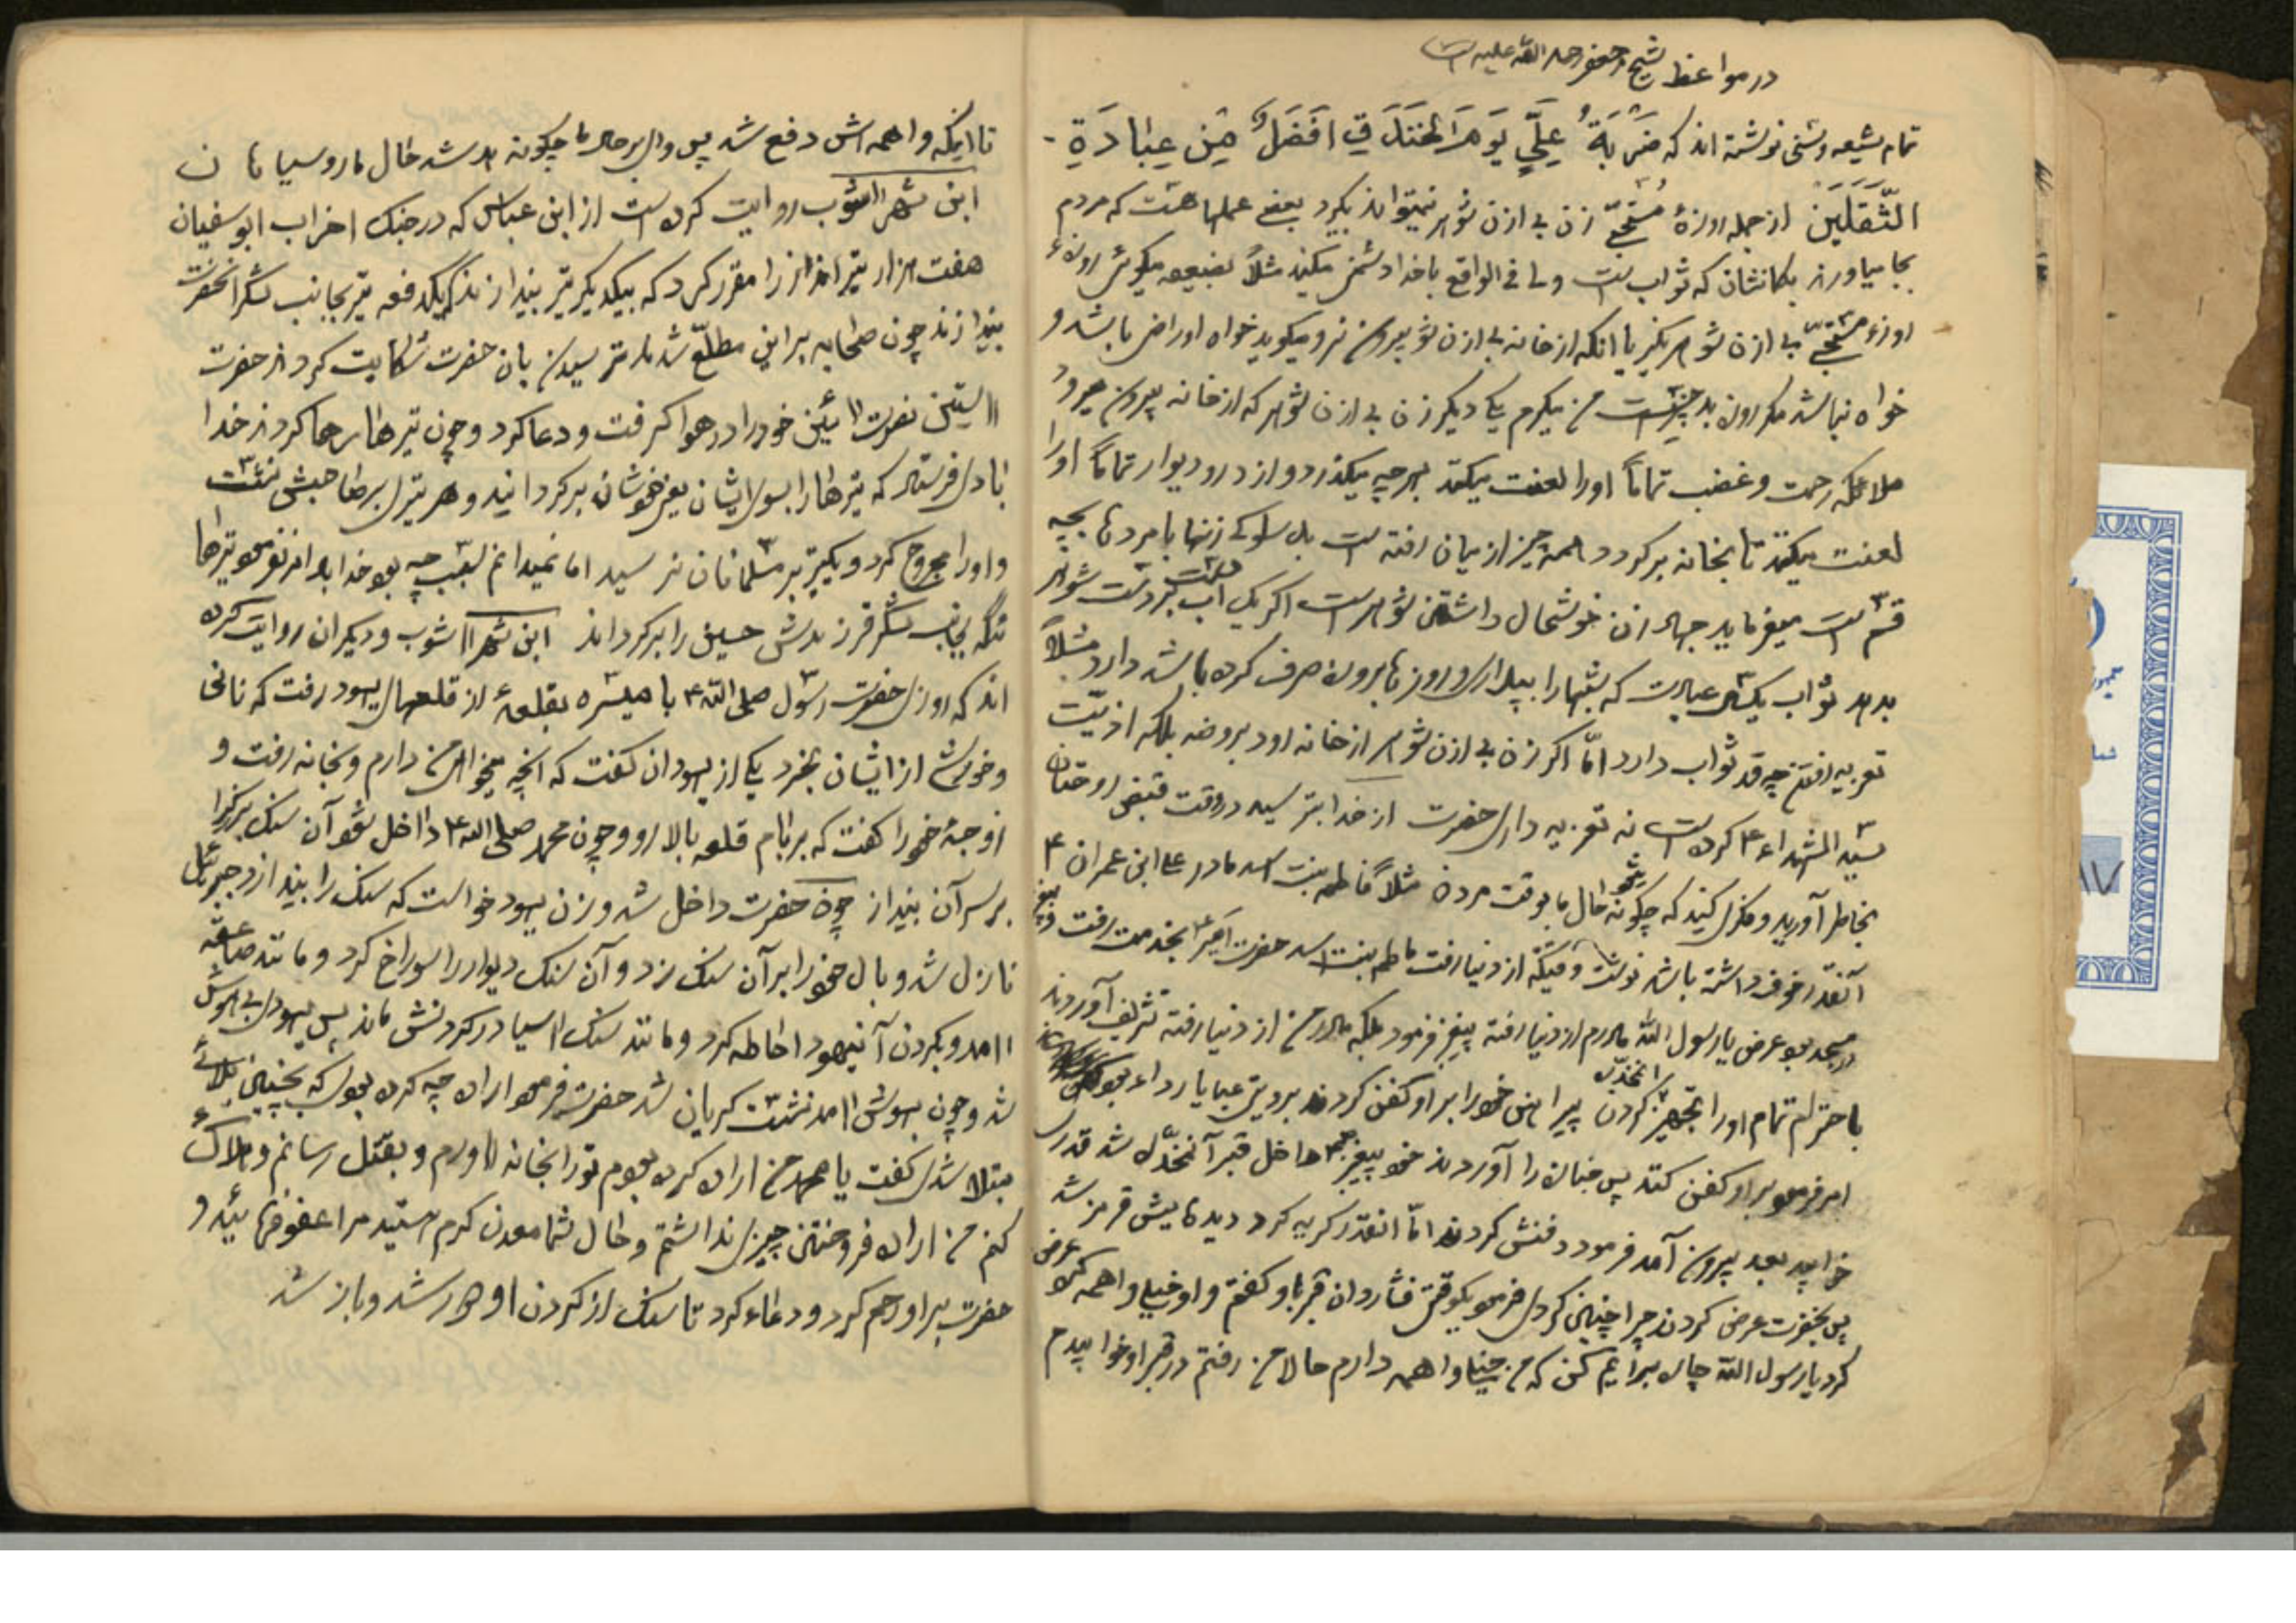 در مواعظ شیخ جعفر رحمه الله علیه است
تمام شیعه و سنی نوشته اند که ضَرْبَةُ عَلِيٍّ يَوْمَ الْخَنْدَقِ اَفْضَلُ مِنْ عِبَادَةِ
الثَّقَلَيْنِ از جمله روزهٔ مستحبی زن بی اذن شوهر نمیتواند بگیرد بعضی عملها هست که مردم
بجا میاورند بگمانشان که ثواب است ولی فی الواقع با خدا دشمنی میکنند مثلاً بضعیفه میگوئی روزهٔ
روزهٔ مستحبی بی اذن شوهر نگیر یا انکه از خانه بی اذن شوهر بیرون نرو میگوید خواه او راضی باشد و
خواه نباشد مگر روزه بد چیزیست من میگیرم یکی دیگر زن بی اذن شوهر که از خانه بیرون میرود
ملائکه رحمت و غضب تماماً او را لعنت میکنند بهر چه میگذرد و از در و دیوار تماماً او را
لعنت میکنند تا بخانه برگردد همه چیز از میان رفته است سلوک زنها با مردها بچه
قسم است میفرماید جهاد زن خوشحال داشتن شوهر است اگر یک آب بدست شوهر
بدهد ثواب یکسال عبادت که شبها را بیدار و روزها بروزه صرف کرده باشد دارد مثلاً
تعزیه رفتن چه قدر ثواب دارد امّا اگر زن بی اذن شوهر از خانه او برود بروضه بلکه اذیّت
سیّد الشهداء ع کرده است نه تعزیه داری حضرت از خدا بترسید در وقت قبض روحتان
بخاطر آورید و فکری کنید که چگونه میشود حال ما بوقت مردن مثلاً فاطمه بنت اسد مادر علی ابن عمران ع
آنقدر خوف داشته باشد نوشته وقتیکه از دنیا رفت فاطمه بنت اسد حضرت امیر ع بخدمت رفت و پیغمبر
در مسجد بود عرض یا رسول الله مادرم از دنیا رفته پیغمبر فرمود بلکه مادر من از دنیا رفته تشریف آوردند
باحترام تمام او را تجهیز کردن انمخدّره پیراهن خود را بر او کفن کردند بردیش عبا یا رداء بود
امر فرمود بر او کفن کنند پس جنازه را آوردند خود پیغمبر داخل قبر آنمخدّره شد قدری
خوابید بعد بیرون آمد فرمود دفنش کردند امّا انقدر گریه کرد دیده هایش قرمز شد
پس بحضرت عرض کردند چرا چنین کردی فرمود یکوقتی فشار دان قبر باو گفتم و او خیلی واهمه کرد عرض
کرد یا رسول الله چاره برایم کن که من خیلی واهمه دارم حالا من رفتم در قبر او خوابیدم
تا اینکه واهمه اش دفع شد پس وای بر حال ما چگونه بد شد حال ما روسیاهان
ابن شهر آشوب روایت کرده است از ابن عباس که در جنگ احزاب ابو سفیان
هفت هزار تیر انداز را مقرر کرد که بیکدیگر تیر بیندازند که یکدفعه تیر بجانب لشکر انحضرت
بیندازند چون صحابه بر این مطلّع شدند ترسیدند بان حضرت شکایت کردند حضرت
آستین نصرت آئین خود را در هوا گرفت و دعا کرد و چون تیرها رها کردند خدا
بادی فرستاد که تیرها را بسوی ایشان یعنی خودشان برگردانید و هر تیری بر صاحبش نشست
و او را مجروح کرد و یکتیر بر مسلمانان نرسید اما نمیدانم بسبب چه بود خدا امر نفرمود تیرها
که بجانب لشکر فرزندش حسین را برگرداند ابن شهر آشوب و دیگران روایت کرده
اند که روزی حضرت رسول صلی الله ع با میسره بقلعهٔ از قلعهای یهود رفت که نانی
و خورش از ایشان بخرد یکی از یهودان گفت که انچه میخواهی من دارم و بخانه رفت و
زوجهٔ خود را گفت که بر بام قلعه بالا رو و چون محمد صلی الله ع داخل شود آن سنگ بزرگ را
بر سر آن بینداز چون حضرت داخل شد و زن یهود خواست که سنگ را بیندازد جبرئیل
نازل شد و بال خود را بر آن سنگ زد و آن سنگ دیوار را سوراخ کرد و مانند صاعقه
آمد و بگردن آنیهود احاطه کرد و مانند سنگ آسیا در گردنش ماند پس یهودی بی هوش
شد و چون بهوش آمد نشست گریان شد حضرت فرمود اراده چه کرده بودی که بچنین بلائی
مبتلا شدی گفت یا محمد من اراده کرده بودم تو را بخانه آورم و بقتل رسانم و هلاک
کنم من اراده فروختن چیزی نداشتم و حال شما معدن کرم هستید مرا عفو فرمائید و
حضرت بر او رحم کرد و دعاء کرد تا سنگ از گردن او دور شد و باز شد